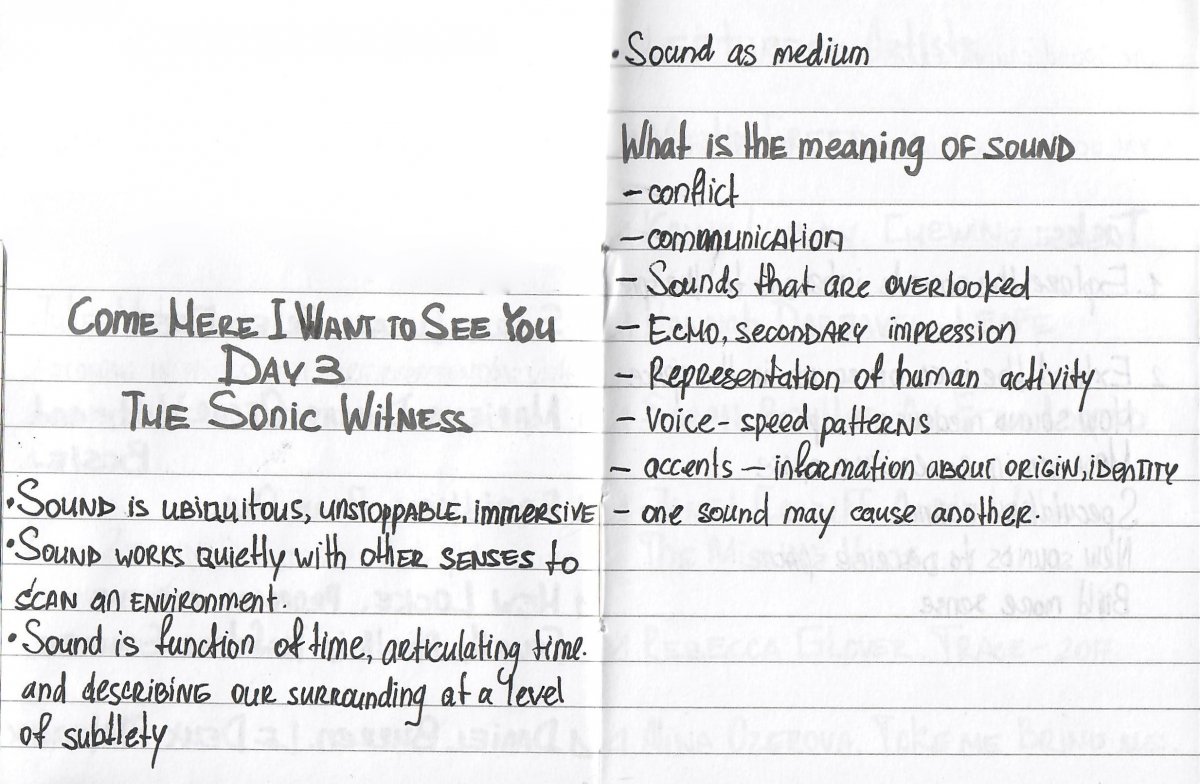 COME HERE I WANT TO SEE YOU
DAY 3
THE SONIC WITNESS
• SOUND IS UBIQUITOUS, UNSTOPPABLE, immersive
• SOUND WORKS QUIETLY with other SENSES to
SCAN an ENVIRONMENT.
• Sound is function of time, articulating time.
and describing our surrounding at a level
of subtlety
• Sound as medium
What is the meaning OF SOUND
- conflict
- communication
- Sounds that are overlooked
- ECHO, SECONDARY impression
- Representation of human activity
- Voice - speed patterns
- accents - information about ORIGIN, IDENTITY
- one sound may cause another.